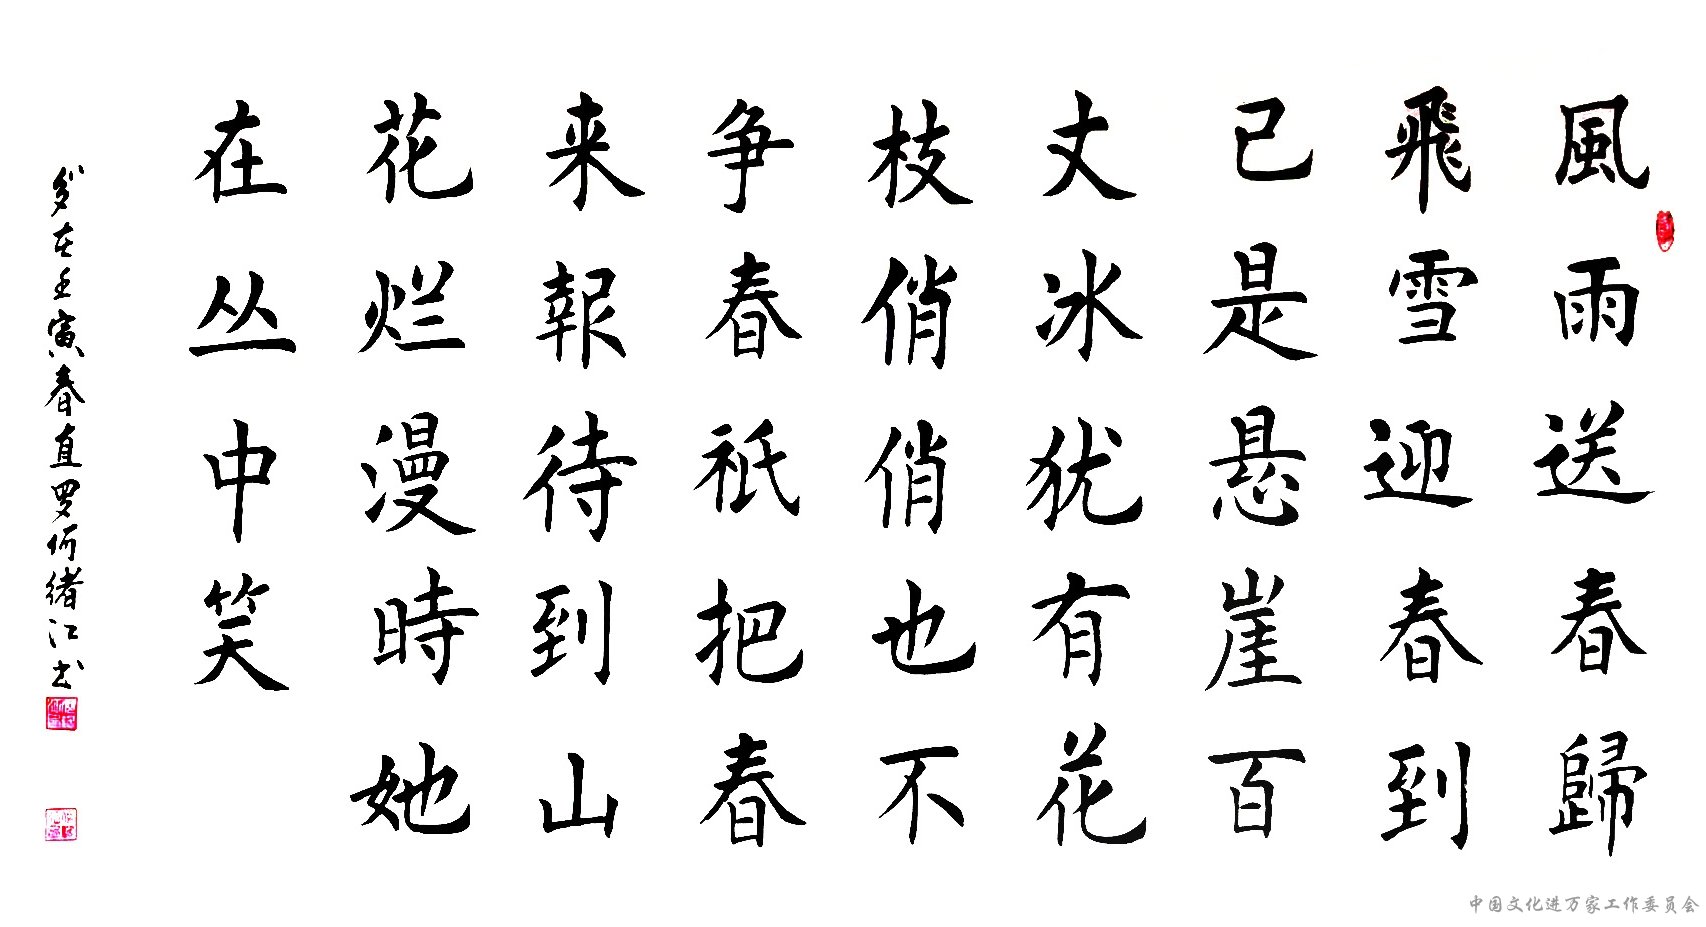 風雨送春歸
飛雪迎春到
已是悬崖百
丈冰犹有花
枝俏俏也不
争春祇把春
来報待到山
花烂漫時她
在丛中笑
岁在壬寅春直罗何绪江书
中国文化进万家工作委员会